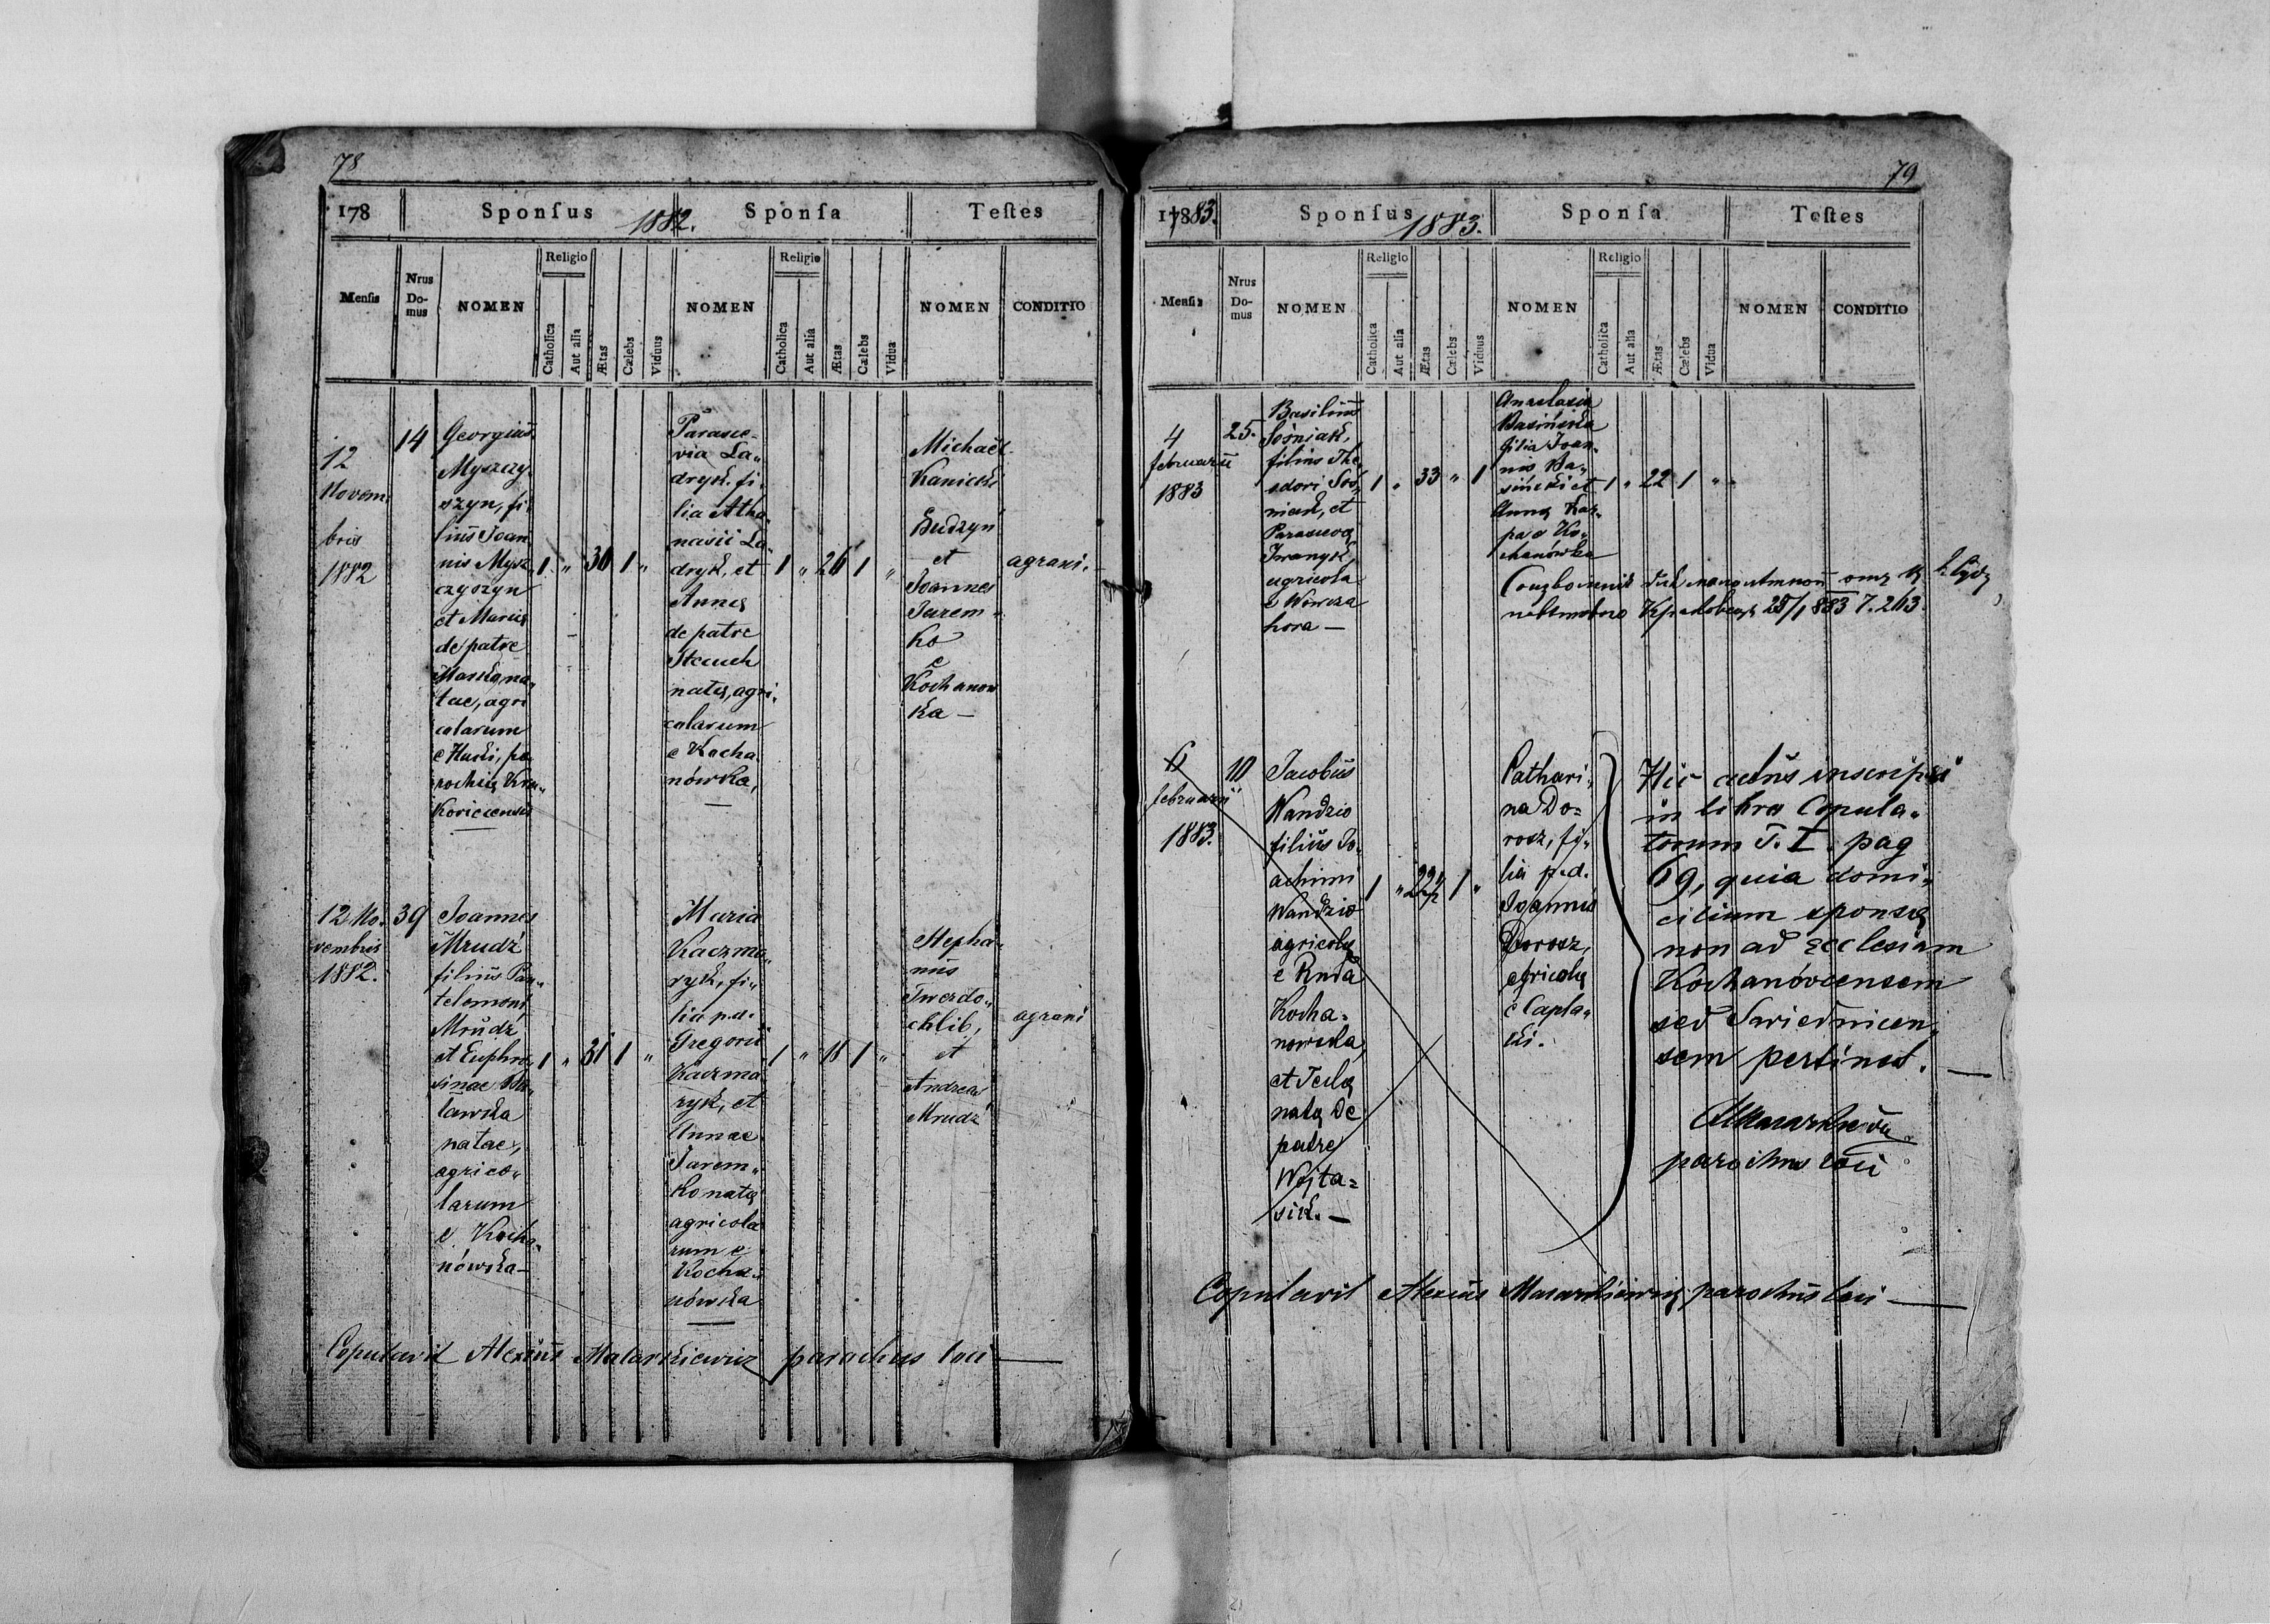 78
178 Sponsus 1882. Sponsa Testes
Mensis
Nrus Domus
NOMEN
Religio
Catholica
Aut alia
Ætas
Cælebs
Viduus
NOMEN
Religio
Catholica
Aut alia
Ætas
Cælebs
Vidua
NOMEN
CONDITIO
12
Novem
bris
1882
14
Georgius
Myszczy
szyn, fi
lius Joan
nis Mysz
czyszyn
et Mariæ
de patre
na„
tae, agri
colarum
e Huski, pa
rochiæ Kra„
koviecensis
1 „ 30 1 „
Parasce„
via La„
dryk. fi„
lia Atha„
nasii La„
dryk, et
Annæ
de patre
Stecuch
natæ, agri„
colarum
e Kocha„
nówka,
1 „ 26 1 „
Michaël
Kanicki
Budzyń
et
Joannes
Jarem„
ko
e
Kochanow
ka —
agrani.
12 No„
vembris
1882.
39
Joannes
Mrudź
filius Pan„
telemoni
Mrudź
et Euphro„
sinae
ławska
natae,
agrico„
larum
e Kocha„
nówka —
1 „ 31 1 „
Maria
Kaczma„
ryk, fi„
lia p.d.
Gregorii
Kaczma„
ryk, et
Annae
Jarem„
ko natæ
agricola
rum e
Kocha„
nówka
1 „ 18 1 „
Stepha„
nus
Twerdo„
chlib,
et
Andreas
Mrudź
agrani
Copulavit Alexius Matarkiewicz parochus loci —
79
17883. Sponsus 1883. Sponsa Testes
Mensis
Nrus Domus
NOMEN
Religio
Catholica
Aut alia
Ætas
Cælebs
Viduus
NOMEN
Religio
Catholica
Aut alia
Ætas
Cælebs
Vidua
NOMEN
CONDITIO
4
februarii
1883
25.
Basilius
Sośniak,
filius The„
odori Soś„
niak, et
Parascevæ
Iwanyk,
agricola
e Wowcza
hora —
1 „ 33 „ 1
Anastasia
Basińska
filia Joan„
nis Ba„
sińcki et
Annæ Kar„
pa e Ko„
chanówka
1 „ 22 1 „
6
februarii
1883.
10
Jacobus
Wandzio
filius Jo„
achimi
Wandzio
agricolæ
e Ruda
Kocha„
nowska,
et Teclæ
natæ de
patre
Wojta„
sik. —
1 „ 22 1/2 1 „
Cathari„
na Do„
rosz, fi„
lia p.d.
Joannis
Dorosz,
agricolæ
e Capla„
ki.
Hic actus inscripsi
in libro Copula„
torum T. I. pag
69, quia domi„
cilium sponsæ
non ad ecclesiam
Kochanóvcensem
sed Swiednicen„
sem pertinet. —
parochus loci
Copulavit Alexius Matarkiewicz parochus loci —